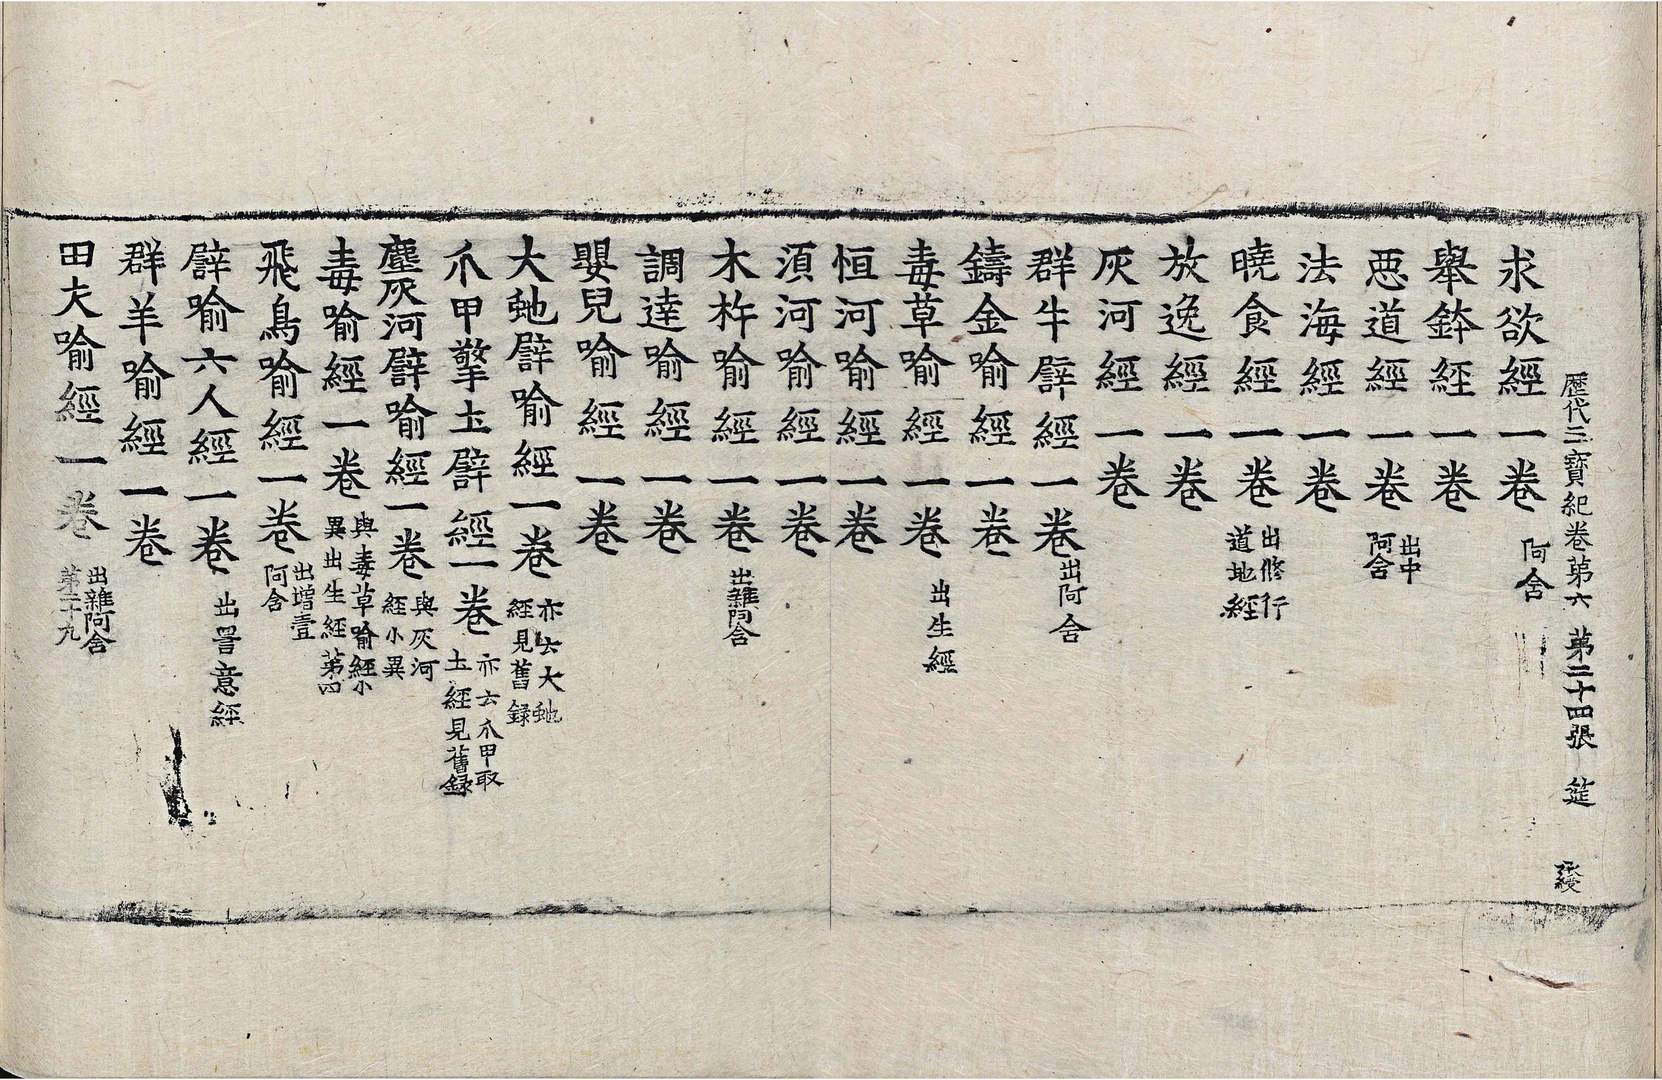 歷代三寶紀卷第六 第二十四張 筵
求欲經一卷 阿含
舉鉢経一卷
惡道經一卷 出中阿含
法海經一卷
曉食經一卷 出修行道地經
放逸經一卷
灰河經一卷
群牛譬經一卷 出阿含
鑄金喻經一卷
毒草喻經一卷 出生經
恒河喻經一卷
湏河喻經一卷
木杵喻經一卷 出雜阿含
調達喻經一卷
嬰兒喻經一卷
大虵譬喻經一卷 亦云大虵經見舊録
爪甲擎土譬經一卷 亦云爪甲取土經見舊録
塵灰河譬喻經一卷 與灰河經小異
毒喻經一卷 與毒草喻經小異出生經第四
飛鳥喻經一卷 出增壹阿含
譬喻六人經一卷 出詈意經
群羊喻經一卷
田夫喻經一卷 出雜阿含第二十九